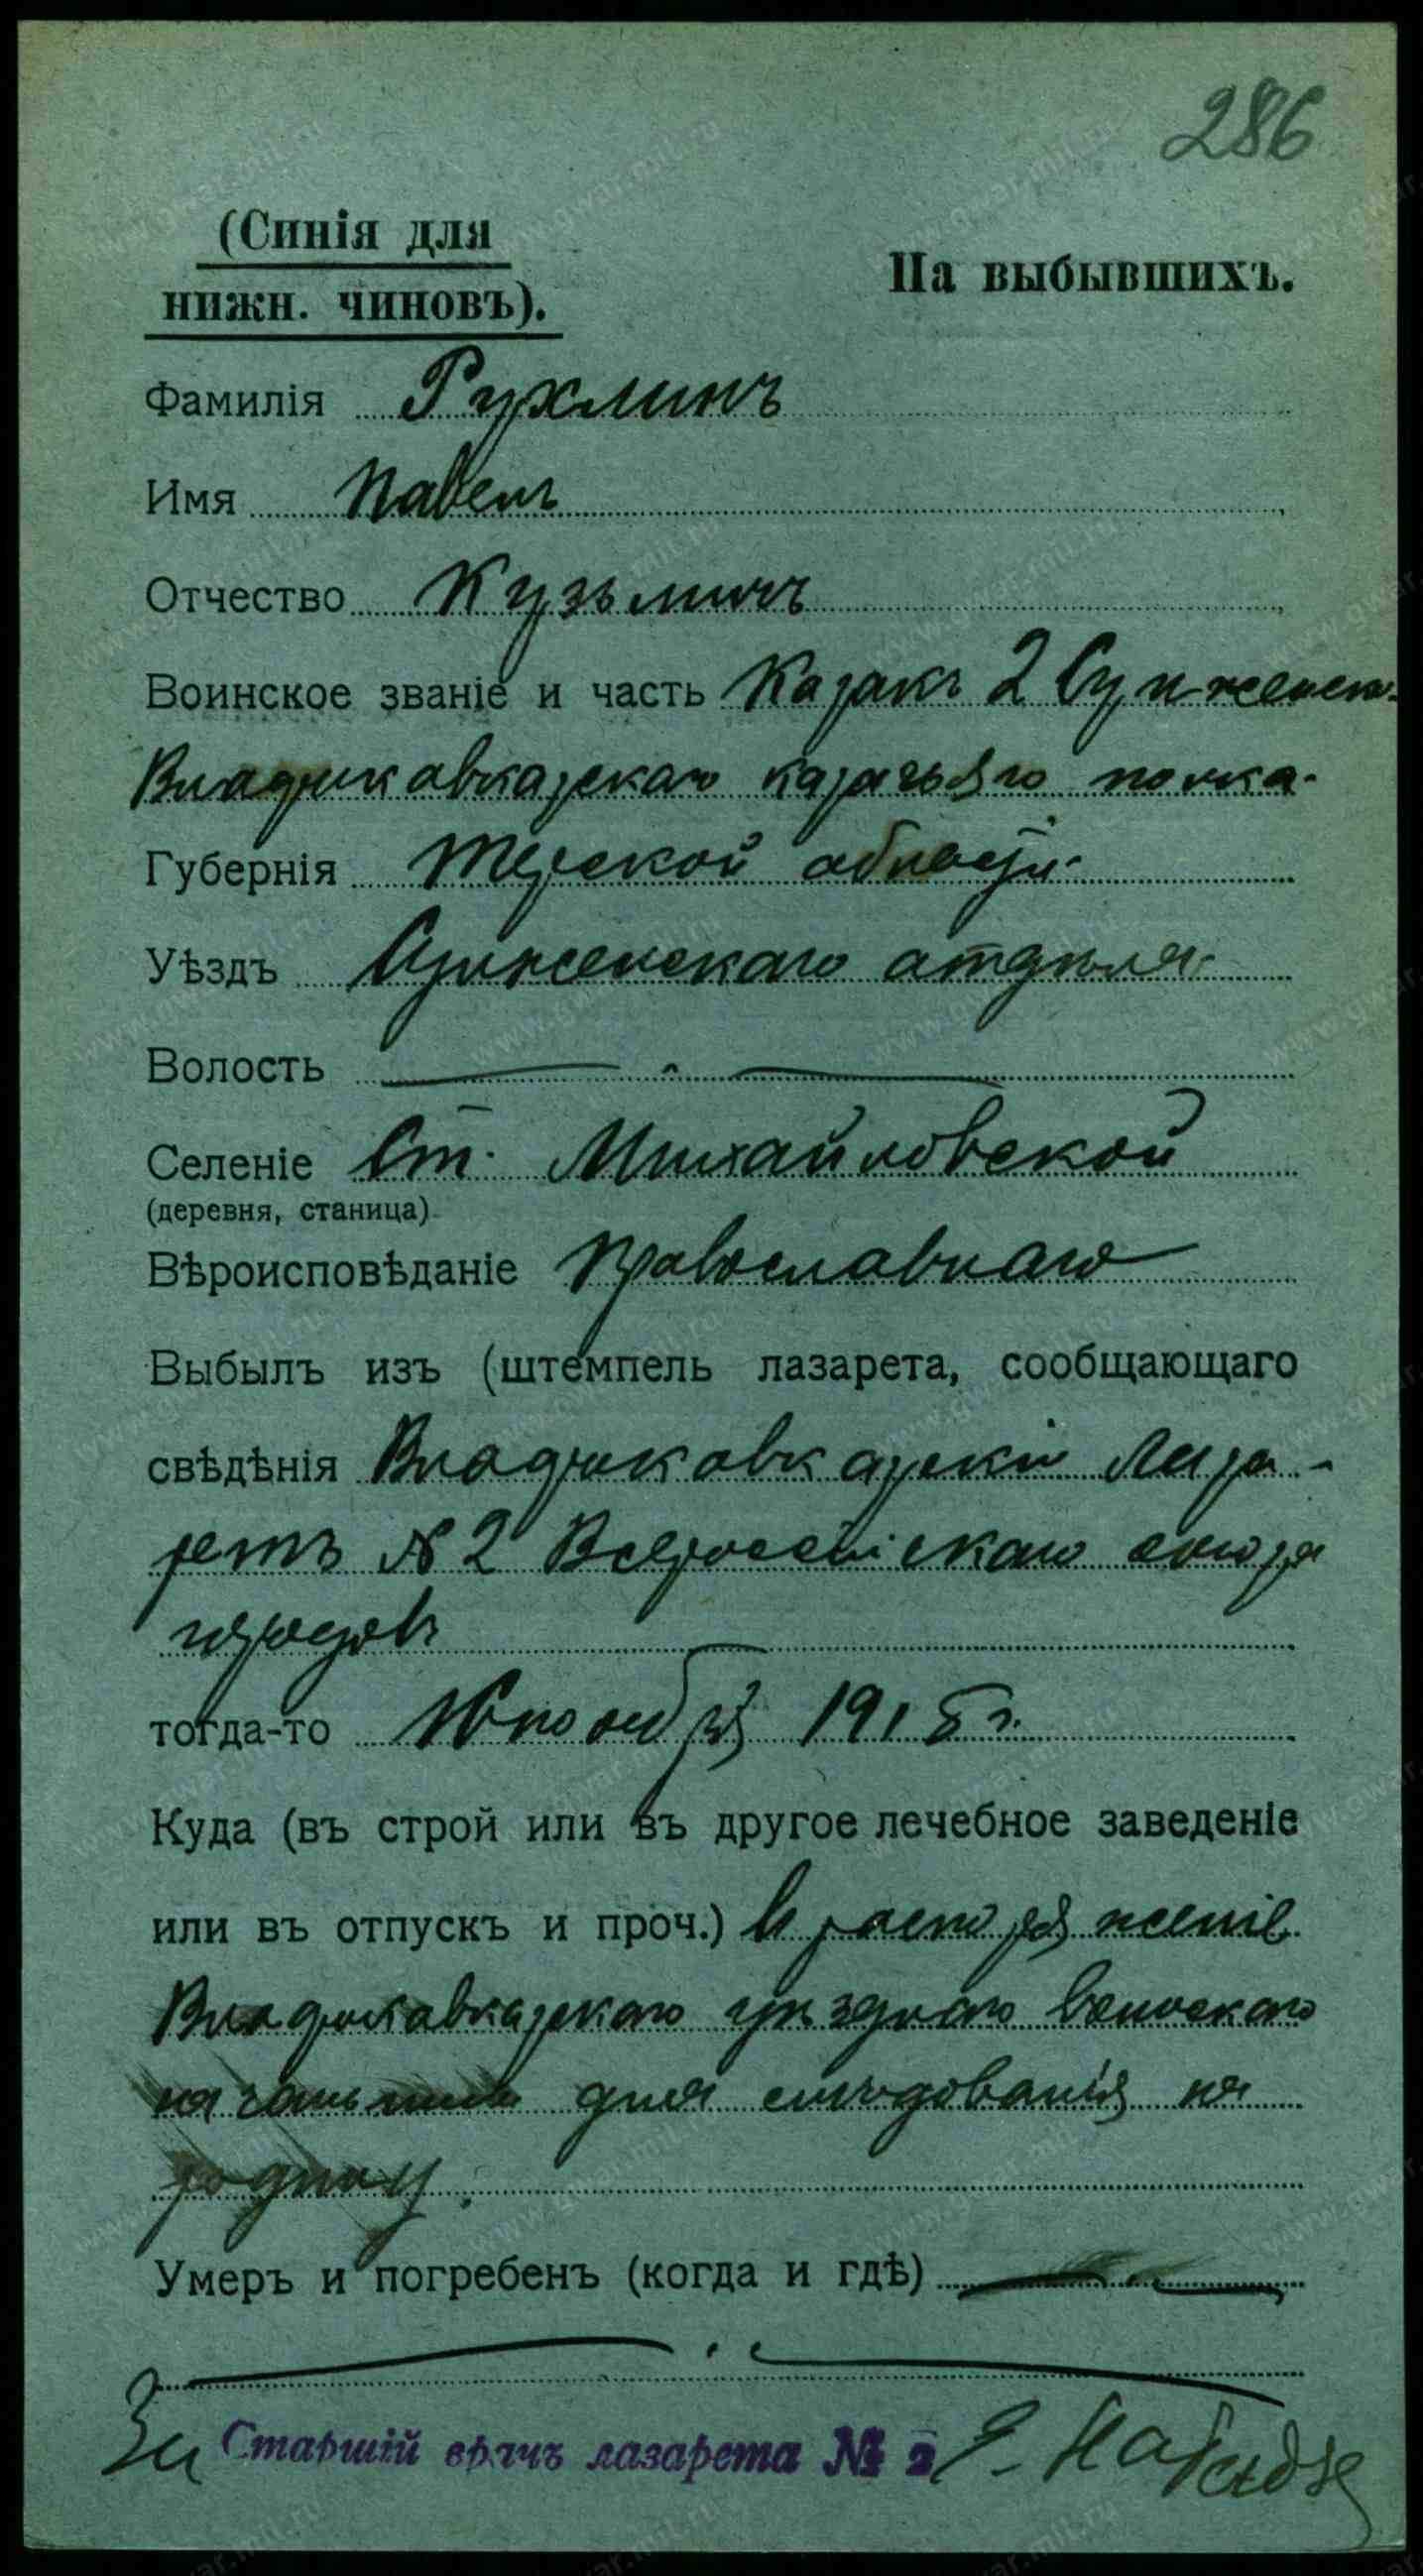 286
(Синія для
нижн. чиновъ).
На выбывшихъ.
Фамилія Рухлинъ
Имя Павелъ
Отчество Кузьмичъ
Воинское званіе и часть Казакъ 2 Сунженско-
Владикавказскаго казачьяго полка.
Губернія Терской области.
Уѣздъ Сунженскаго отдѣла.
Волость
Селеніе Ст. Михайловской
(деревня, станица)
Вѣроисповѣданіе Православнаго
Выбылъ изъ (штемпель лазарета, сообщающаго
свѣдѣнія Владикавказскій Лаза-
ретъ № 2 Всероссійскаго союза
городовъ
тогда-то ноября 1915 г.
Куда (въ строй или въ другое лечебное заведеніе
или въ отпускъ и проч.) въ распоряженіе
Владикавказскаго уѣзднаго воинскаго
начальника для слѣдованія на
родину.
Умеръ и погребенъ (когда и гдѣ)
За Старшій врачъ лазарета № 2